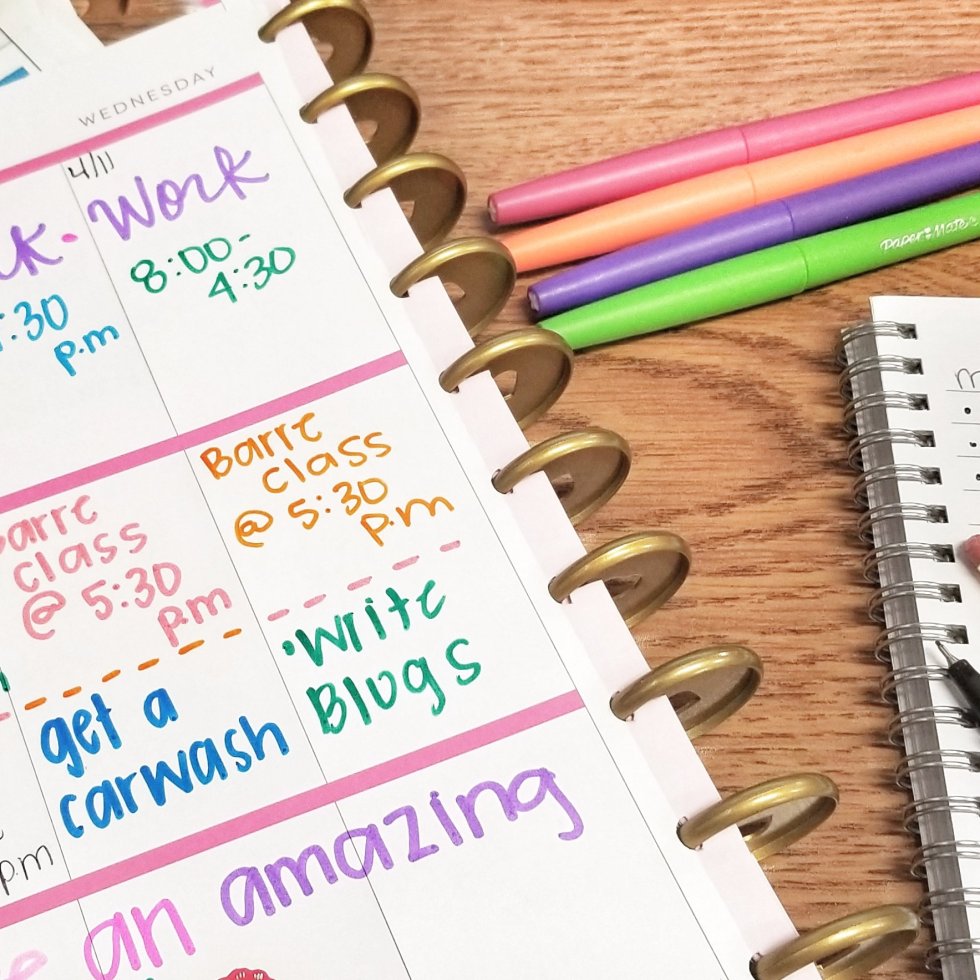 WEDNESDAY
4/11
Work
8:00-
4:30
:30
p.m
Barre
class
@ 5:30
p.m
•Write
Blogs
class
@ 5:30
p.m
get a
carwash
p.m
an amazing
Paper Mate